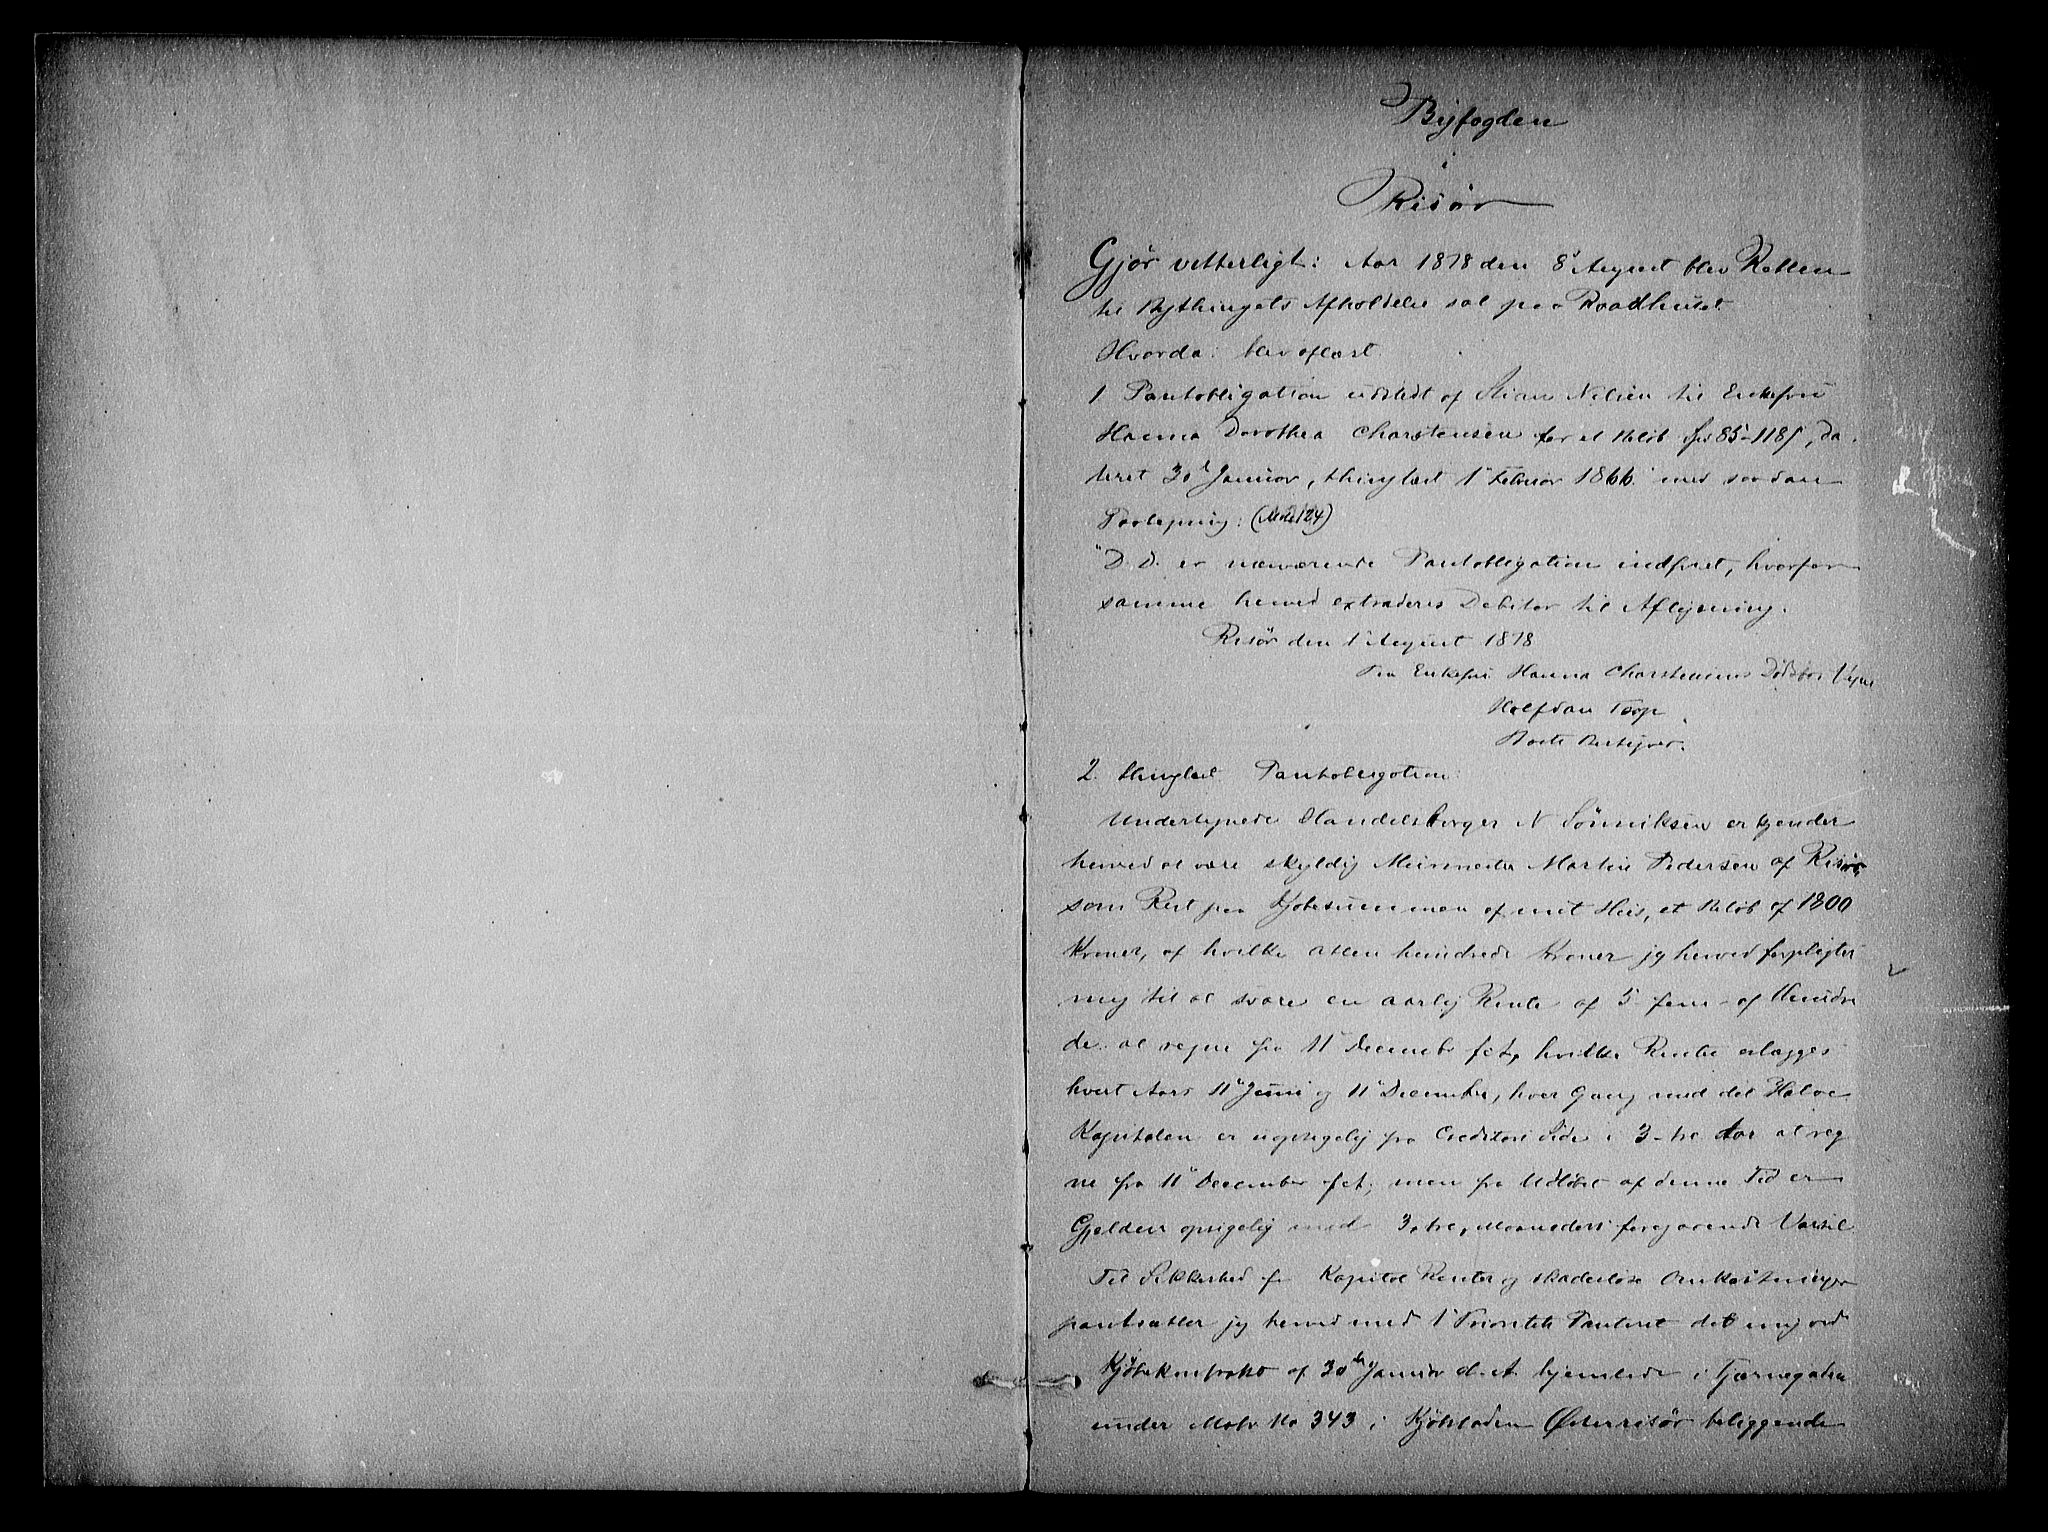 Byfogden
i
Risør
Gjør vitterligt: Aar 1878 den 8' August blev Retten
til Bythingets Afholdelse sat paa Raadhuset.
Hvorda: blev oplæst
1 Pantobligation udstedt af Stian Nelsen til Enkefru
Hanna Dorothea Charstensen for et Beløb 85-118, da
teret 30' Januar, thinglæst 1' Februar 1866 med saadan
Paategning: 124)
"D. D. er nærværende Pantobligation indfriet, hvorfor
samme herved extraderes Debitor til Aflysning.
Risør den 1' August 1878
Enkefru Hanna Charstensens Dødsbos
Halfdan
Bestyrer.
2. thinglæst Pantobligation:
Undertegnede Handelsborger N Sønniksen erkjender
herved at være skyldig Martin Pedersen af Risør,
som Rest paa Kjøbesummen af mit Huus, et Beløb af 1800
Kroner, af hvilke atten hundrede Kroner jeg herved forpligter
mig til at svare en aarlig Rente af 5 - fem - af Hundre
de at regne fra 11' December f A, hvilke Renter erlægges
hvert Aars 11' Juni og 11' December, hver Gang med det Halve
Kapitalen er uopsigelig fra Creditors Side i 3 - tre Aar at reg
ne fra 11' December f A; men fra Udløbet af denne Tid er
Gjelden opsigelig med 3, tre, Maaneders foregaaende Varsel.
Til Sikkerhed for Kapital Renter og skadesløse Omkostninger
pantsætter jeg herved med 1' Prioritets Panteret det mig ved
Kjøbekontrakt af 30' Januar d. A hjemlede i Tjærnegaten
under Matr No 343 i Kjøbstaden Østerrisør beliggende